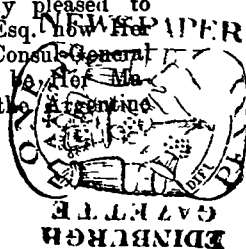 y pleased to
Esq. now Her
Consul-General
be Her Ma
the Argentine
NEWSPAPER
ONE
GAZETTE
EDINBURGH